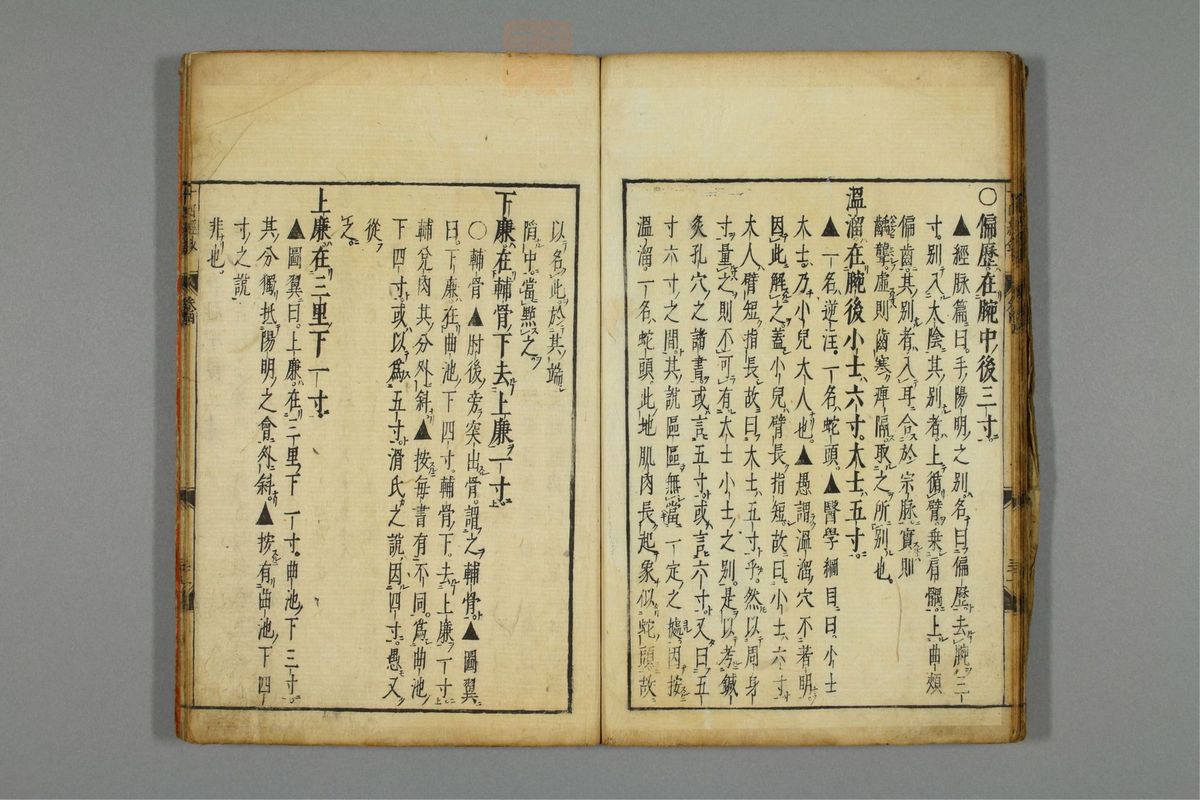 〇偏歷在腕中後三寸
▲經脉篇曰手陽明之別名曰偏歷去腕三
寸別入太陰其別者上循臂乘肩髃上曲頰
偏齒其別者入耳合於宗脉實則
齲聾虛則齒寒痺隔取之所別也
溫溜在腕後小士六寸大士五寸
▲一名逆注一名蛇頭▲醫學綱目曰小士
大士乃小兒大人也▲愚謂溫溜穴不著明
因此解之蓋小兒臂長指短故曰小士六寸
大人臂短指長故曰大士五寸乎然以周身
寸量之則不可有大士小士之別是以考鍼
灸孔穴之諸書或言五寸或言六寸又曰五
寸六寸之間其說區區無當一定之據因按
溫溜一名蛇頭此地肌肉長起象似蛇頭故
以名此於其端
陷中當點之
下廉在輔骨下去上廉一寸
〇輔骨▲肘後旁突出骨謂之輔骨▲圖翼
曰下廉在曲池下四寸輔骨下去上廉一寸
輔兌肉其分外斜▲按每書有不同爲曲池
下四寸或以爲五寸滑氏之說因四寸愚又
從
之
上廉在三里下一寸
▲圖翼曰上廉在三里下一寸曲池下三寸
其分獨抵陽明之會外斜▲按有曲池下四
寸之說
非也